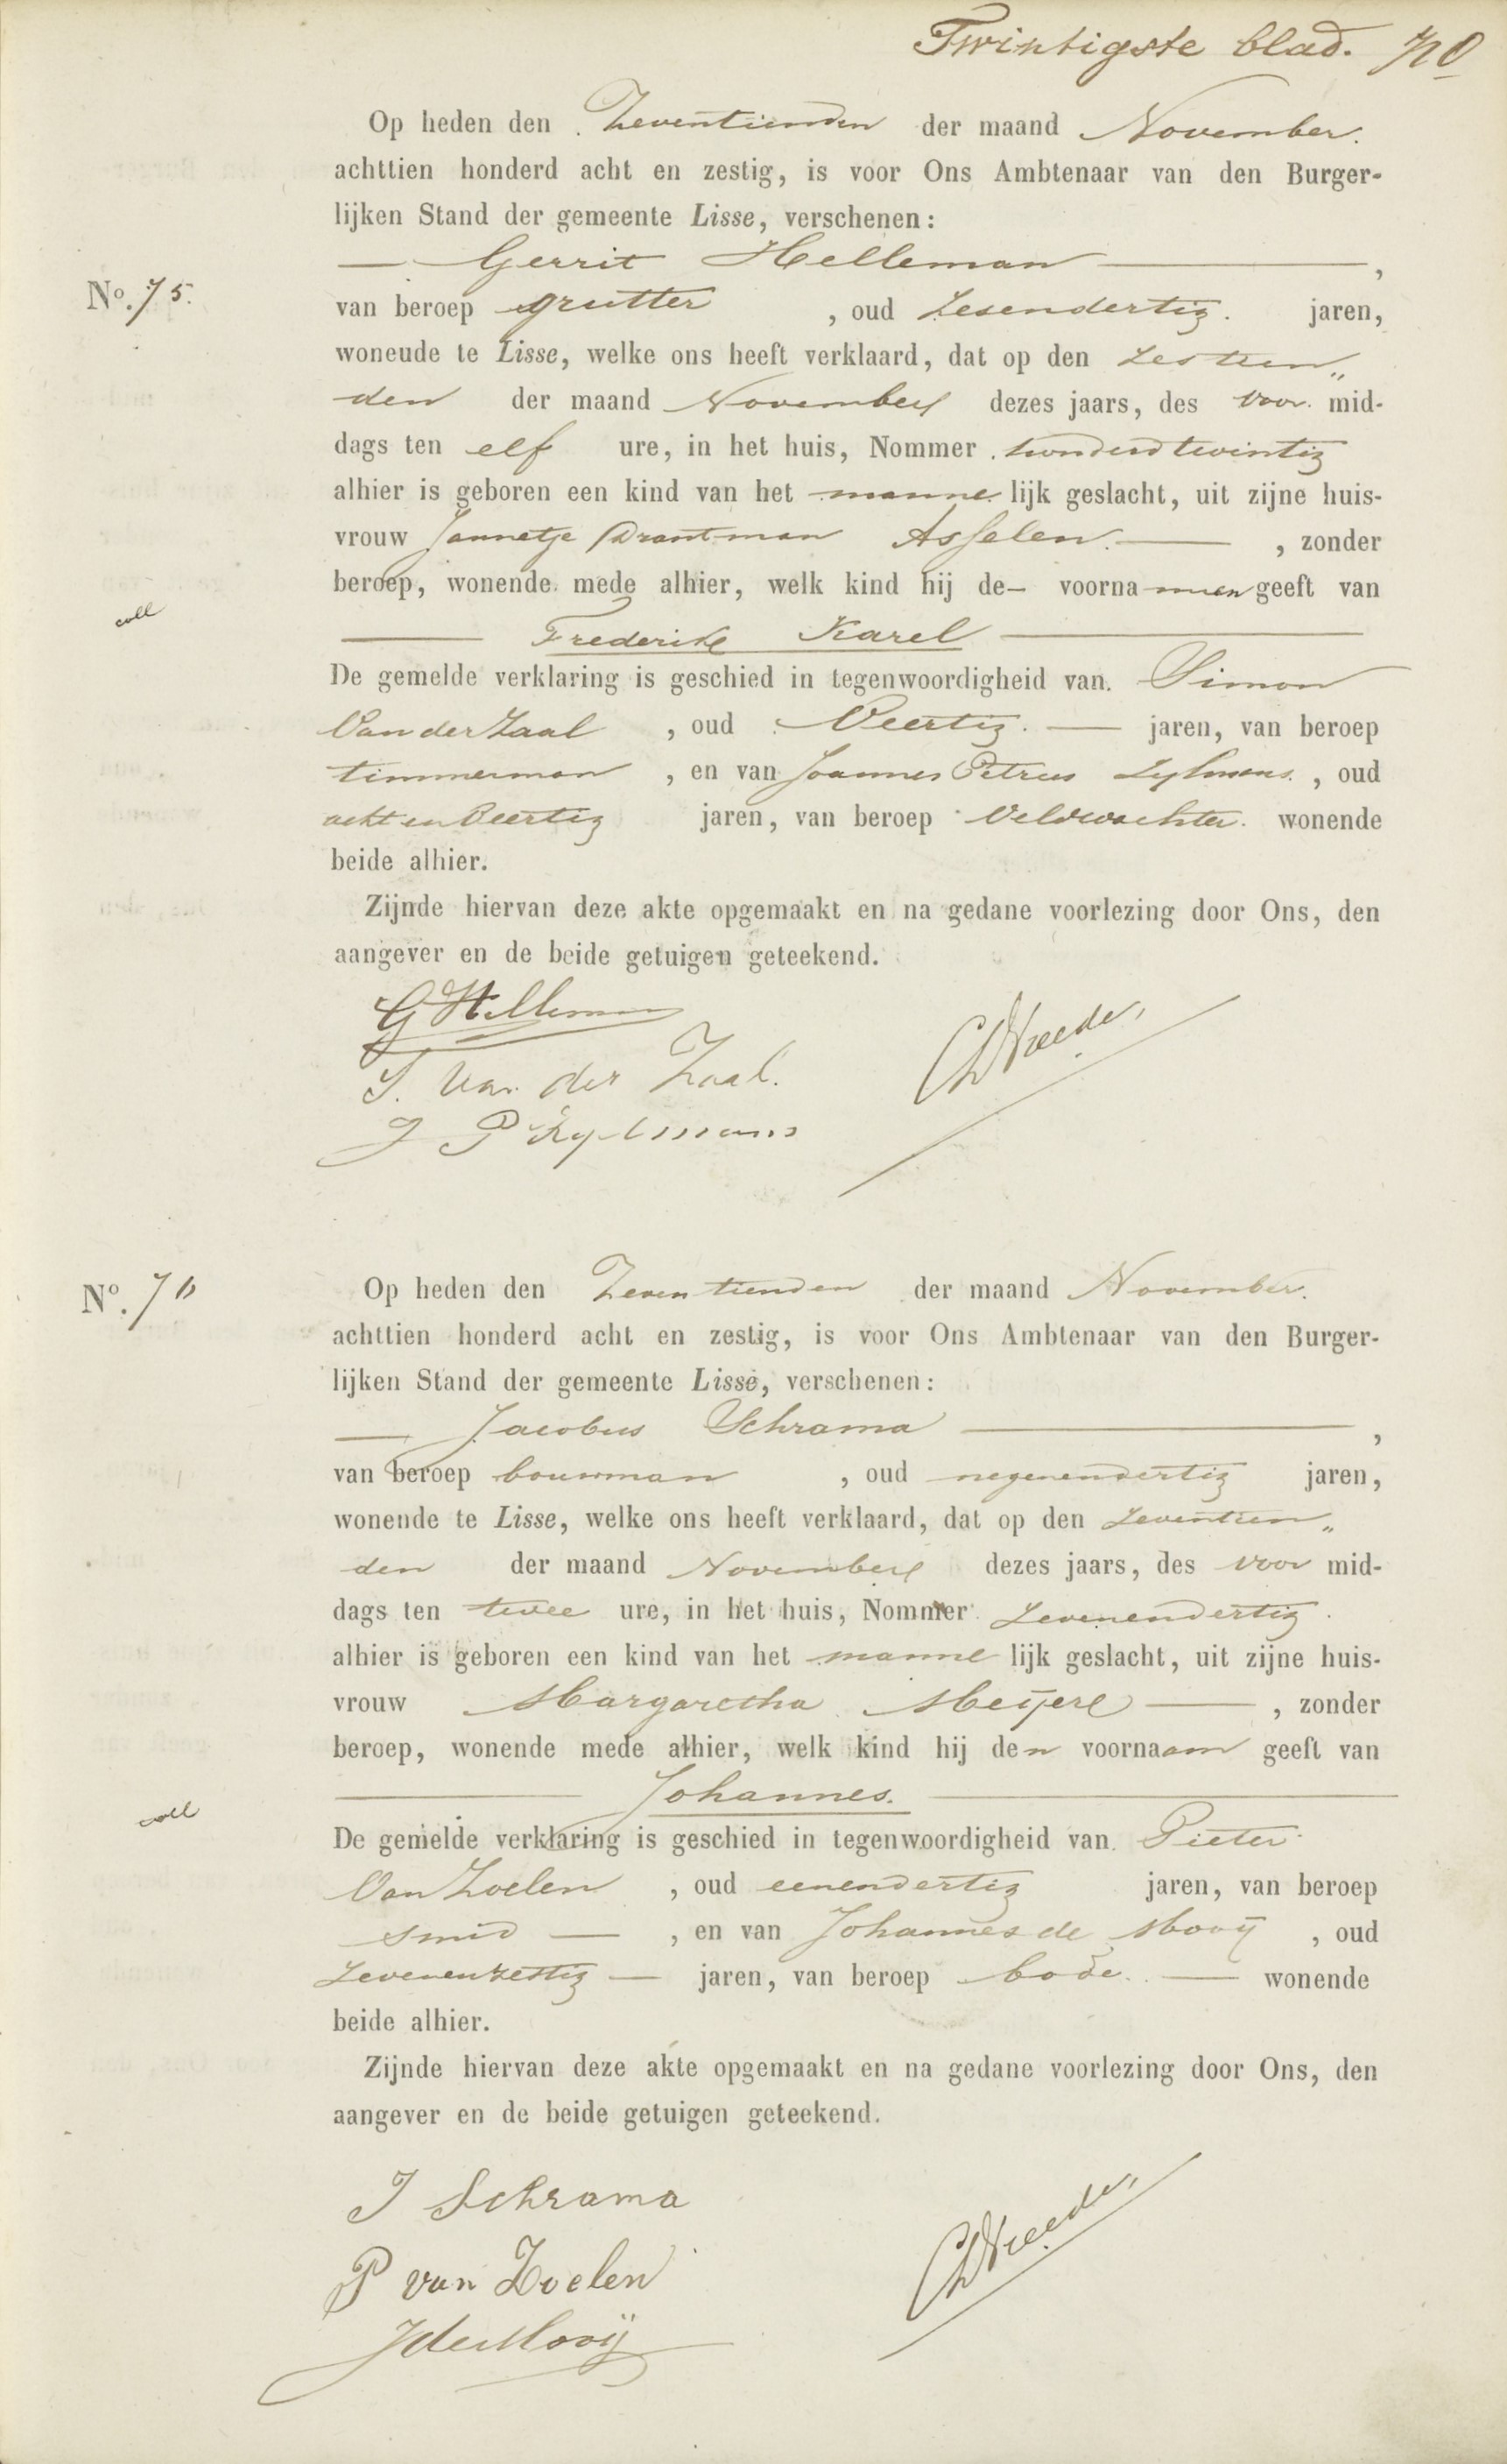 Twintigste blad.
Op heden den Zeventienden der maand November.
achttien honderd acht en zestig, is voor Ons Ambtenaar van den Burger-
lijken Stand der gemeente Lisse, verschenen:
— Gerrit Helleman —,
No. 75.
van beroep grutter, oud zesendertig. jaren,
woneude te Lisse, welke ons heeft verklaard, dat op den zestien„
den der maand November dezes jaars, des voor. mid-
dags ten elf ure, in het huis, Nommer honderd twintig
alhier is geboren een kind van het manne lijk geslacht, uit zijne huis-
vrouw Jannetje Drantman Asselen. —, zonder
beroep, wonende mede alhier, welk kind hij de— voorna men geeft van
coll
— Frederik Karel —
De gemelde verklaring is geschied in tegenwoordigheid van. Simon
Van der Zaal, oud Veertig. — jaren, van beroep
timmerman, en van Joannes Petrus Zylmans., oud
acht en Veertig jaren, van beroep Veldwachter. wonende
beide alhier.
Zijnde hiervan deze akte opgemaakt en na gedane voorlezing door Ons, den
aangever en de beide getuigen geteekend.
G Helleman
S. Van der Zaal.
J P Zylmans
No. 76
Op heden den Zeventienden der maand November.
achttien honderd acht en zestig, is voor Ons Ambtenaar van den Burger-
lijken Stand der gemeente Lisse, verschenen:
— Jacobus Schrama —,
van beroep bouwman, oud negenendertig jaren,
wonende te Lisse, welke ons heeft verklaard, dat op den zeventien„
den der maand November dezes jaars, des voor mid-
dags ten twee ure, in het huis, Nommer Zevenendertig.
alhier is geboren een kind van het manne lijk geslacht, uit zijne huis-
vrouw Margaretha Meijer —, zonder
beroep, wonende mede alhier, welk kind hij den voornaam geeft van
— Johannes. —
coll
De gemelde verklaring is geschied in tegenwoordigheid van Pieter
Van Zoelen, oud eenendertig jaren, van beroep
smid —, en van Johannes de Mooij, oud
Zevenenzestig — jaren, van beroep bode. — wonende
beide alhier.
Zijnde hiervan deze akte opgemaakt en na gedane voorlezing door Ons, den
aangever en de beide getuigen geteekend.
J Schrama
P van Zoelen
J de Mooij